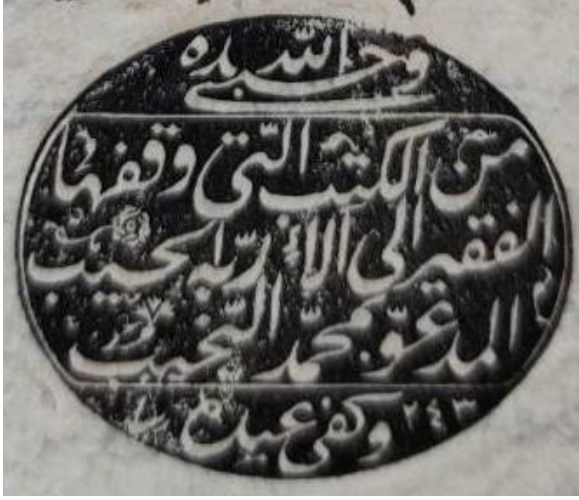 حسبي الله وحده
من الكتب التي وقفها
الفقير الى الاء ربه المجيب
المدعو بمحمد النجيب
وكفى عبده ٢٤٣